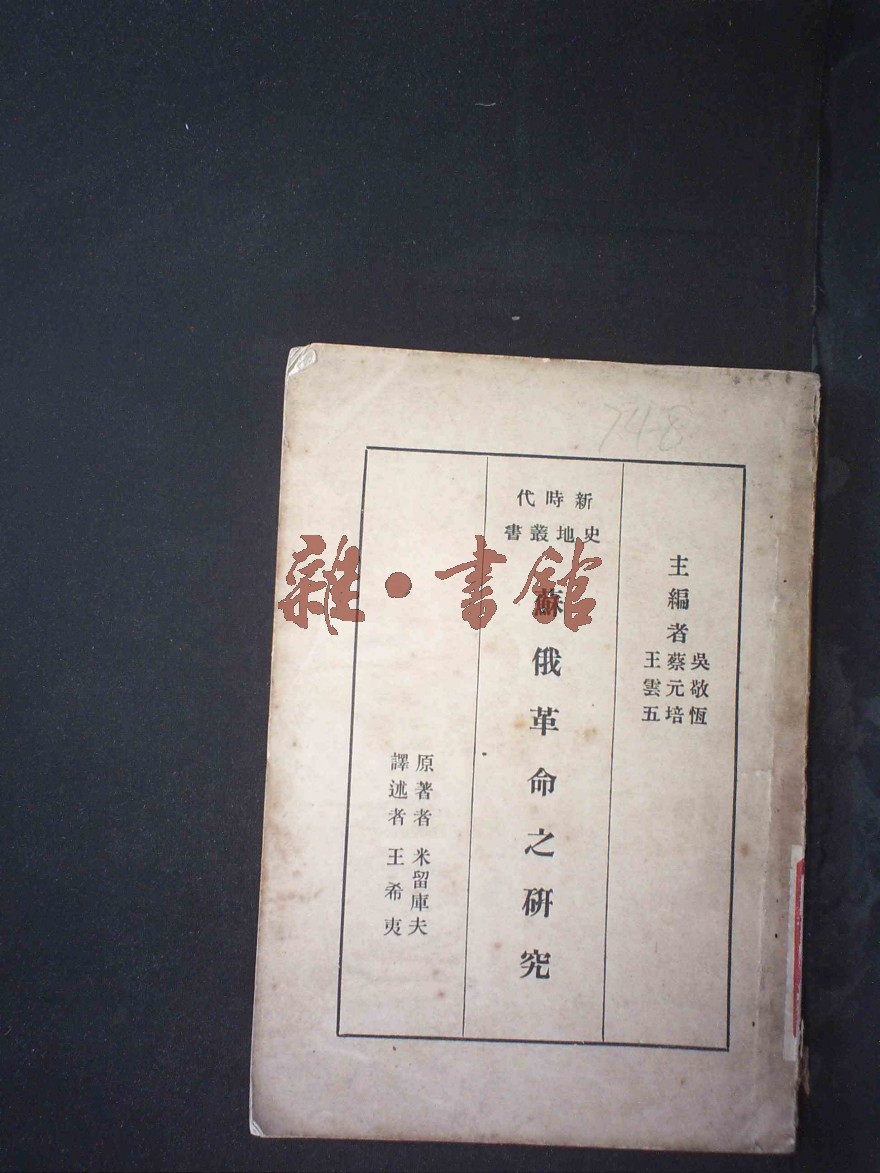 748
主編者
吳敬恆
蔡元培
王雲五
新時代
史地叢書
蘇俄革命之研究
原著者 米留庫夫
譯述者 王希夷
雜·書館